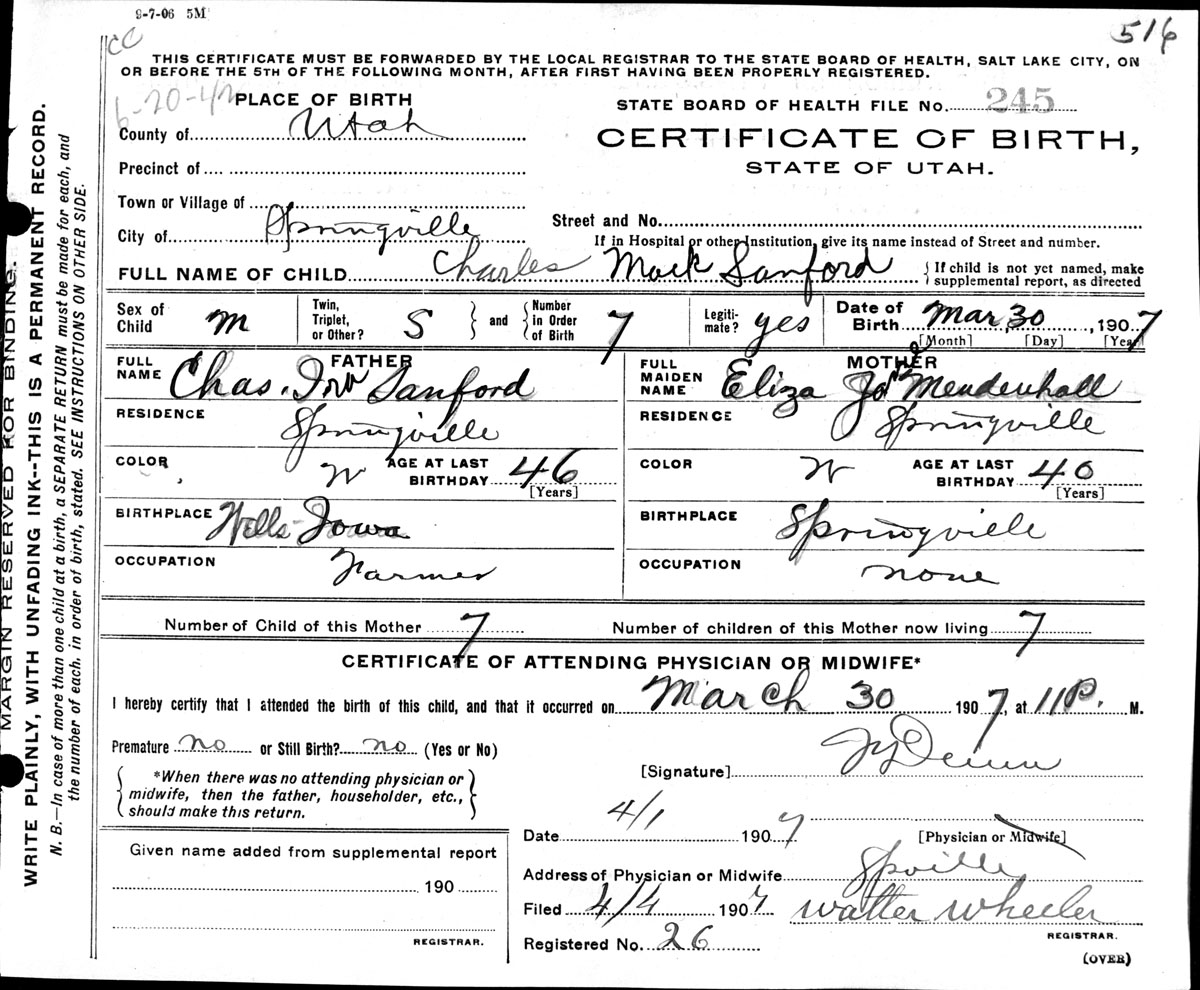 9-7-06 5M
516
CC
THIS CERTIFICATE MUST BE FORWARDED BY THE LOCAL REGISTRAR TO THE STATE BOARD OF HEALTH, SALT LAKE CITY, ON
OR BEFORE THE 5TH OF THE FOLLOWING MONTH, AFTER FIRST HAVING BEEN PROPERLY REGISTERED.
6-20-42
PLACE OF BIRTH
STATE BOARD OF HEALTH FILE No. 245
County of Utah
CERTIFICATE OF BIRTH,
STATE OF UTAH.
Precinct of
Town or Village of
City of Springville
Street and No.
If in Hospital or other Institution, give its name instead of Street and number.
FULL NAME OF CHILD Charles Mack Sanford
{If child is not yet named, make
supplemental report, as directed
Sex of Child M
Twin, Triplet, or Other? S } and { Number in Order of Birth 7
Legiti-mate? yes
Date of Birth Mar 30, 1907
[Month] [Day] [Year]
FATHER
FULL NAME Chas. Ira Sanford
RESIDENCE Springville
COLOR W AGE AT LAST BIRTHDAY 46
[Years]
BIRTHPLACE Wells Iowa
OCCUPATION Farmer
MOTHER
FULL MAIDEN NAME Eliza Mendenhall
RESIDENCE Springville
COLOR W AGE AT LAST BIRTHDAY 40
[Years]
BIRTHPLACE Springville
OCCUPATION none
Number of Child of this Mother 7
Number of children of this Mother now living 7
CERTIFICATE OF ATTENDING PHYSICIAN OR MIDWIFE*
I hereby certify that I attended the birth of this child, and that it occurred on March 30 1907, at 11 P. M.
Premature no or Still Birth? no (Yes or No)
[Signature]
*When there was no attending physician or
midwife, then the father, householder, etc.,
should make this return.
Date 4/1 1907
[Physician or Midwife]
Given name added from supplemental report
190
REGISTRAR.
Address of Physician or Midwife Spville
Filed 4/4 1907 Walter Wheeler
REGISTRAR.
Registered No. 26
(OVER)
MARGIN RESERVED FOR BINDING.
WRITE PLAINLY, WITH UNFADING INK--THIS IS A PERMANENT RECORD.
N. B.—In case of more than one child at a birth, a SEPARATE RETURN must be made for each, and
the number of each. in order of birth, stated. SEE INSTRUCTIONS ON OTHER SIDE.